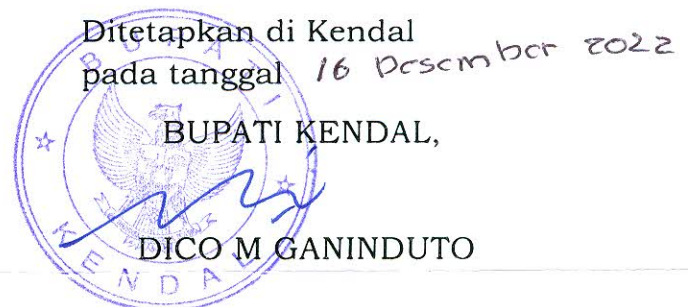 Ditetapkan di Kendal
pada tanggal 16 Desember 2022
BUPATI KENDAL,
DICO M GANINDUTO
BUPATI
KENDAL